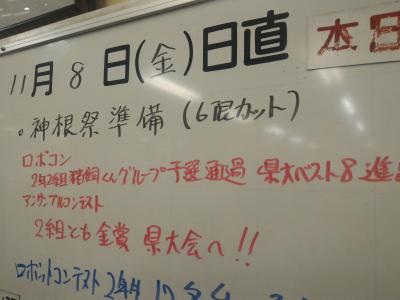 11月8日(金)日直 本日
。神根祭準備(6限カット)
ロボコン
2年2組猪飼くんグループ予選通過 県大ベスト8進
アンサンブルコンテスト
2組とも金賞 県大会へ!!
ロボットコンテスト 2年